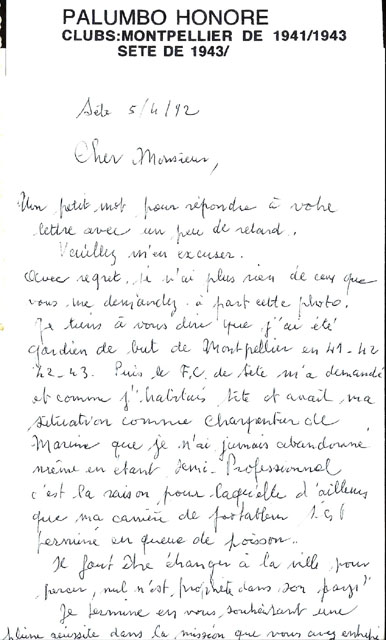 PALUMBO HONORE
CLUBS:MONTPELLIER DE 1941/1943
SETE DE 1943/
Sète 5/4/92
Cher Monsieur,
Un petit mot pour répondre à votre
lettre avec un peu de retard.
Veuillez m'en excuser.
Avec regret, je n'ai plus rien de ceux que
vous me demandez à part cette photo.
Je tiens à vous dire que j'ai été
gardien de but de Montpellier en 41-42
42-43. Puis le F.C. de Sète m'a demandé
et comme j'habitais Sète et avait ma
situation comme Charpentier de
Marine que je n'ai jamais abandonné
même en étant Semi-Professionnel
c'est la raison pour laquelle d'ailleurs
que ma carrière de footballeur s'est
terminé en queue de poisson..
Il faut être étranger à la ville pour
percer, nul n'est prophète dans son pays!
Je termine en vous souhaitant une
pleine réussite dans la mission que vous avez